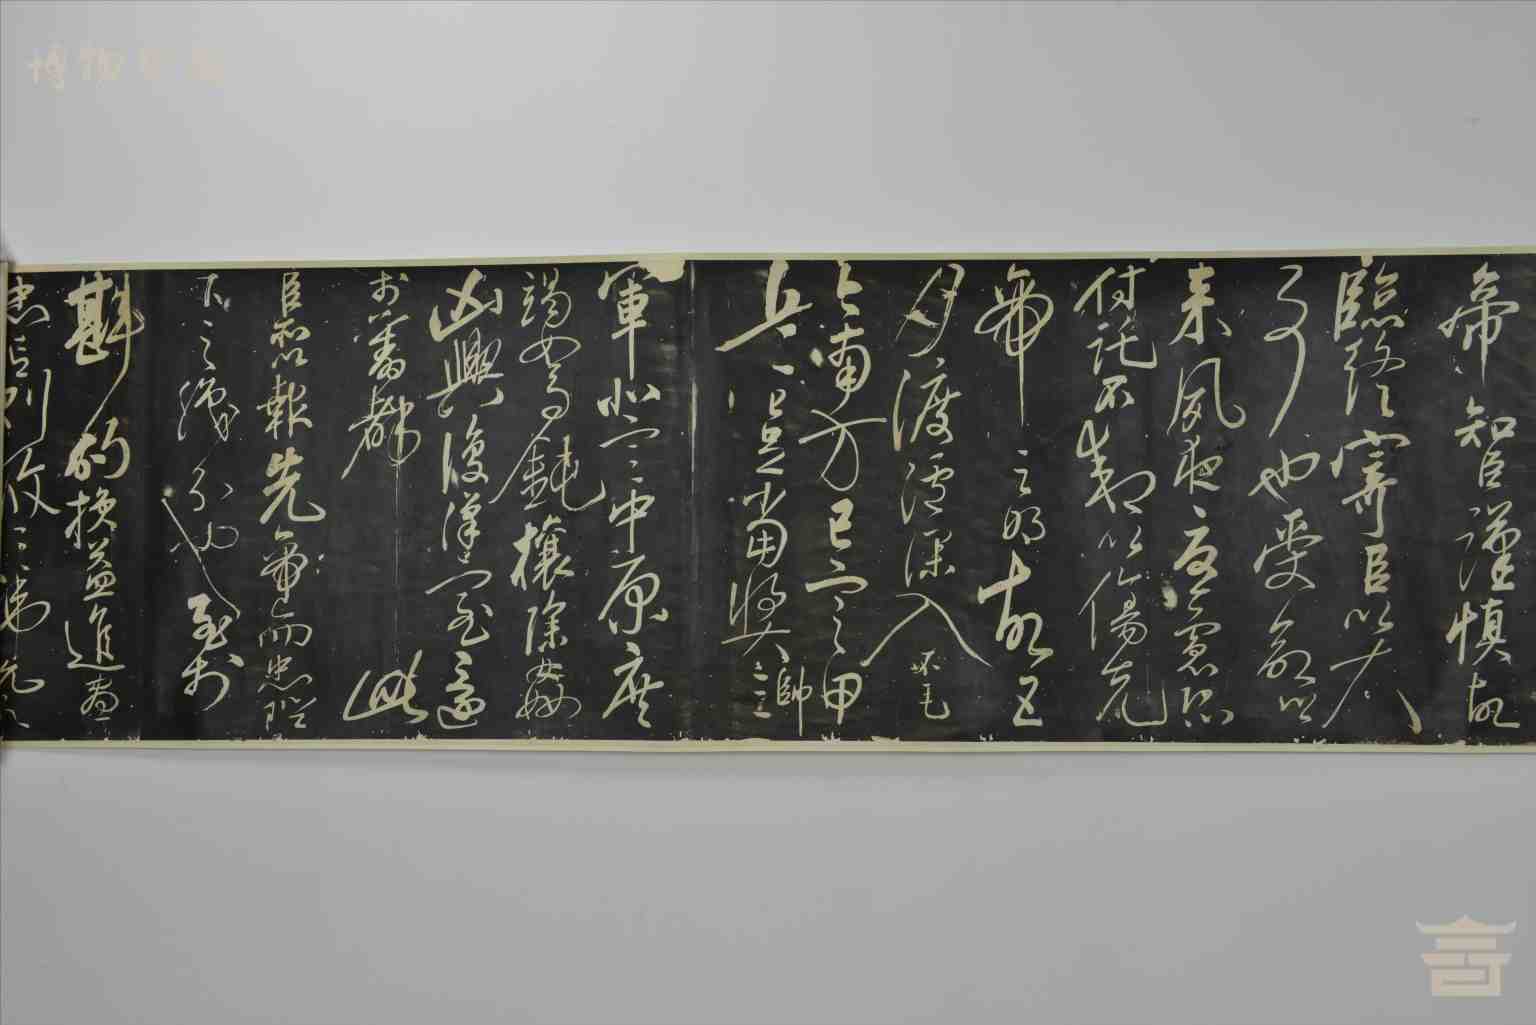 帝知臣謹慎故
臨終寄臣以大
事也受命以
來夙夜憂慮恐
付託不效以傷先
帝之明故五
月渡瀘深入不毛
今南方已定甲
兵已足當獎帥三
軍北定中原庶
竭駑鈍攘除姦
凶興復漢室還
於舊都此
臣所以報先帝而忠陛
下之職分也至於
斟酌損益進盡
忠言則攸之禕允
博物